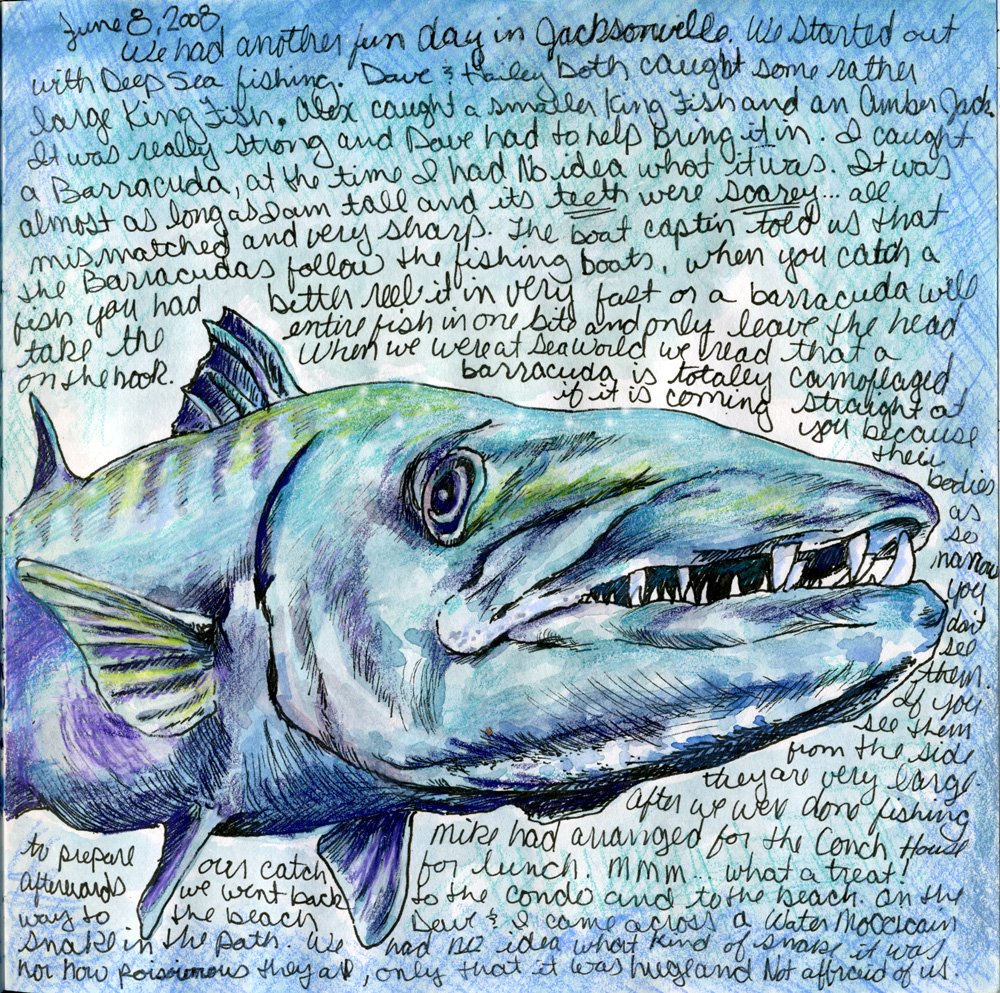 June 8, 2008
We had another fun day in Jacksonville. We started out
with Deep Sea fishing. Dave & Hailey both caught some rather
large King Fish. Alex caught a smaller King Fish and an Amber Jack.
It was really strong and Dave had to help Bring it in. I caught
a Barracuda, at the time I had No idea what it was. It was
almost as long as I am tall and its teeth were scarey... all
mismatched and very sharp. The boat captin told us that
the Barracudas follow the fishing boats, when you catch a
fish you had better reel it in very fast or a barracuda will
take the entire fish in one bite and only leave the head
on the hook. When we were at Sea World we read that a
barracuda is totally camoflaged
if it is coming straight at
you because
their
bodies
as
so
narrow
you
don't
see
them.
If you
see them
from the side
they are very large
After we were done fishing
Mike had arranged for the Conch House
to prepare our catch for lunch. MMM... what a treat!
Afterwards we went back to the condo and to the beach. On the
way to the beach Dave & I came across a Water Moccicain
snake in the path. We had NO idea what kind of snake it was
nor how poisonous they are, only that it was huge and Not affraid of us.